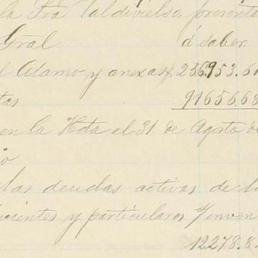 la Sra Valdivielso, presente
Gral á saber.
l Alamo y anexas 256.953.6
tas 91656,68
en la Hota el 31 de Agosto de
las deudas activas de
cientes y particulares s/ inven
12278.8